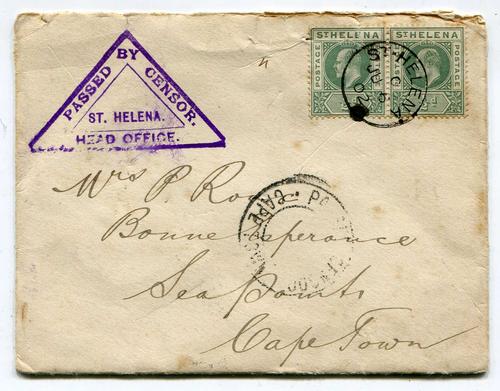 PASSED BY CENSOR.
ST. HELENA.
HEAD OFFICE.
ST HELENA
POSTAGE
ST HELENA
POSTAGE
ST. HELENA
C
02
Mrs P.
Bonne Esperance
Sea Point
Cape Town
CAPE